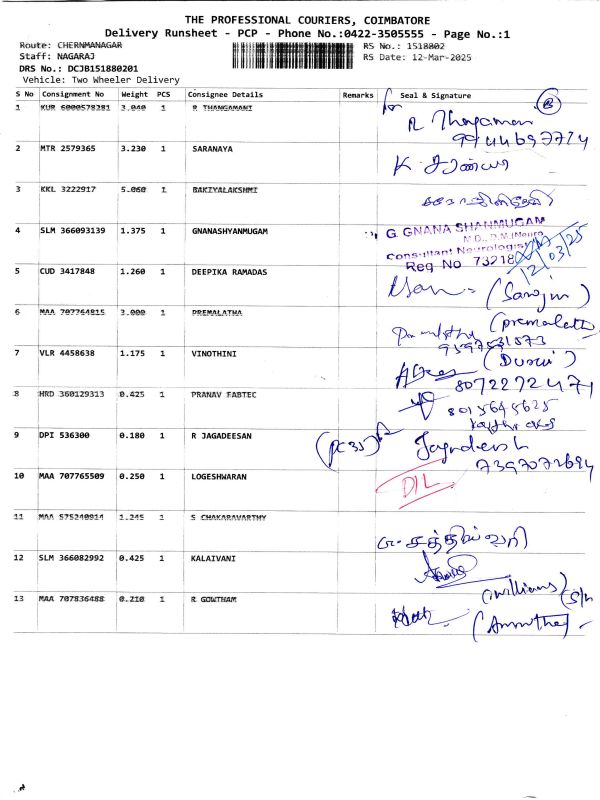 THE PROFESSIONAL COURIERS, COIMBATORE
Delivery Runsheet - PCP - Phone No.:0422-3505555 - Page No.:1
Route: CHERNMANAGAR RS No.: 1518802
Staff: NAGARAJ RS Date: 12-Mar-2025
DRS No.: DCJB151880201
Vehicle: Two Wheeler Delivery
S No Consignment No Weight PCS Consignee Details Remarks Seal & Signature
1 KUR 6000578281 3.040 1 R THANGAMANI
9944697774
2 MTR 2579365 3.230 1 SARANAYA
K சரண்யா
3 KKL 3222917 5.060 1 BAKIYALAKSHMI
4 SLM 366093139 1.375 1 GNANASHYANMUGAM
G. GNANA SHANMUGAM
M.D., D.M.(Neuro
Consultant Neurologist
Reg No 73218
12/03/25
5 CUD 3417848 1.260 1 DEEPIKA RAMADAS
6 MAA 707764815 3.000 1 PREMALATHA
(premalatha
7 VLR 4458638 1.175 1 VINOTHINI
8072272471
8 HRD 360129313 0.425 1 PRANAV FABTEC
8015645625
9 DPI 536300 0.180 1 R JAGADEESAN
7397072694
10 MAA 707765509 0.250 1 LOGESHWARAN
D/L
11 MAA 575240914 1.245 1 S CHAKARAVARTHY
12 SLM 366082992 0.425 1 KALAIVANI
(williams)
13 MAA 707836488 0.210 1 R GOWTHAM
(Ammutha)